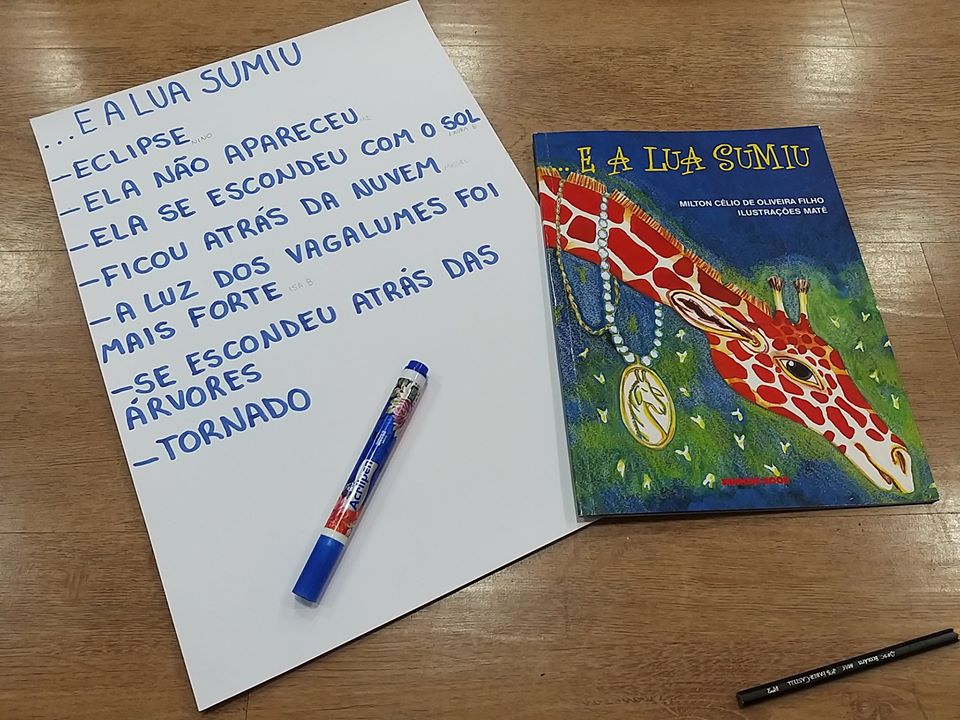 ...E A LUA SUMIU
–ECLIPSE NINO
–ELA NÃO APARECEU
–ELA SE ESCONDEU COM O SOL LAURA B
–FICOU ATRÁS DA NUVEM MIGUEL
–A LUZ DOS VAGALUMES FOI
MAIS FORTE ISA B
–SE ESCONDEU ATRÁS DAS
ÁRVORES
–TORNADO
Acrilpen
... E A LUA SUMIU
MILTON CÉLIO DE OLIVEIRA FILHO
ILUSTRAÇÕES MATÉ
BRINQUE-BOOK
FABER CASTELL Nº2